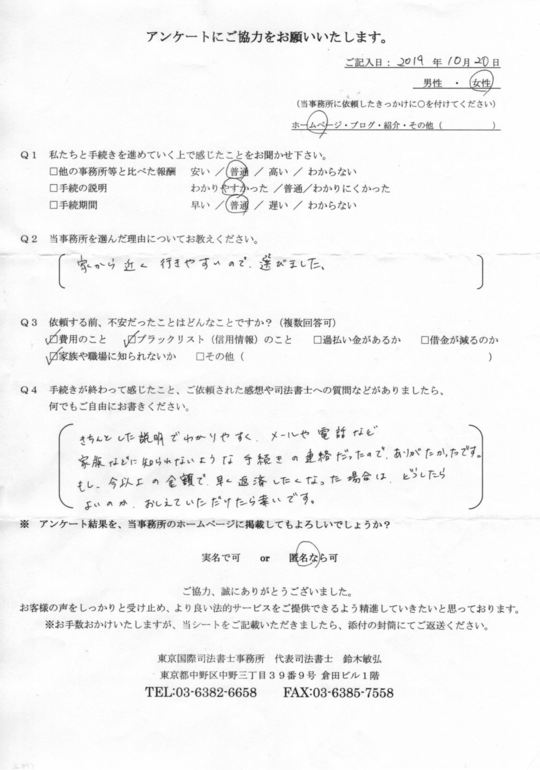 アンケートにご協力をお願いいたします。
ご記入日: 2019 年 10 月 20 日
男性 ・ 女性
(当事務所に依頼したきっかけに○を付けてください)
ホームページ・ブログ・紹介・その他 (　　　　)
Q1 私たちと手続きを進めていく上で感じたことをお聞かせ下さい。
□他の事務所等と比べた報酬 安い / 普通 / 高い / わからない
□手続の説明 わかりやすかった /普通/わかりにくかった
□手続期間 早い / 普通 / 遅い / わからない
Q2 当事務所を選んだ理由についてお教えください。
家から近く行きやすいので、選びました、
Q3 依頼する前、不安だったことはどんなことですか?(複数回答可)
☑費用のこと ☑ブラックリスト(信用情報)のこと □過払い金があるか □借金が減るのか
☑家族や職場に知られないか □その他 (　　　　)
Q4 手続きが終わって感じたこと、ご依頼された感想や司法書士への質問などがありましたら、
何でもご自由にお書きください。
きちんとした説明でわかりやすく、メールや電話など
家族などに知られないような手続きの連絡だったので、ありがたかったです。
もし、今以上の金額で早く返済したくなった場合は、どうしたら
よいのか、おしえていただけたら幸いです。
※ アンケート結果を、当事務所のホームページに掲載してもよろしいでしょうか?
実名で可 or 匿名なら可
ご協力、誠にありがとうございました。
お客様の声をしっかりと受け止め、より良い法的サービスをご提供できるよう精進していきたいと思っております。
※お手数おかけいたしますが、当シートをご記載いただきましたら、添付の封筒にてご返送ください。
東京国際司法書士事務所 代表司法書士 鈴木敏弘
東京都中野区中野三丁目39番9号 倉田ビル1階
TEL:03-6382-6658 FAX:03-6385-7558